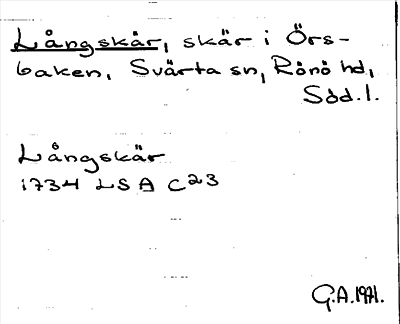 Långskär, skär i Örs-
baken, Svärta sn, Rönö hd,
Söd.l.
Långskär
1734 LSA C23
G.A. 1971.